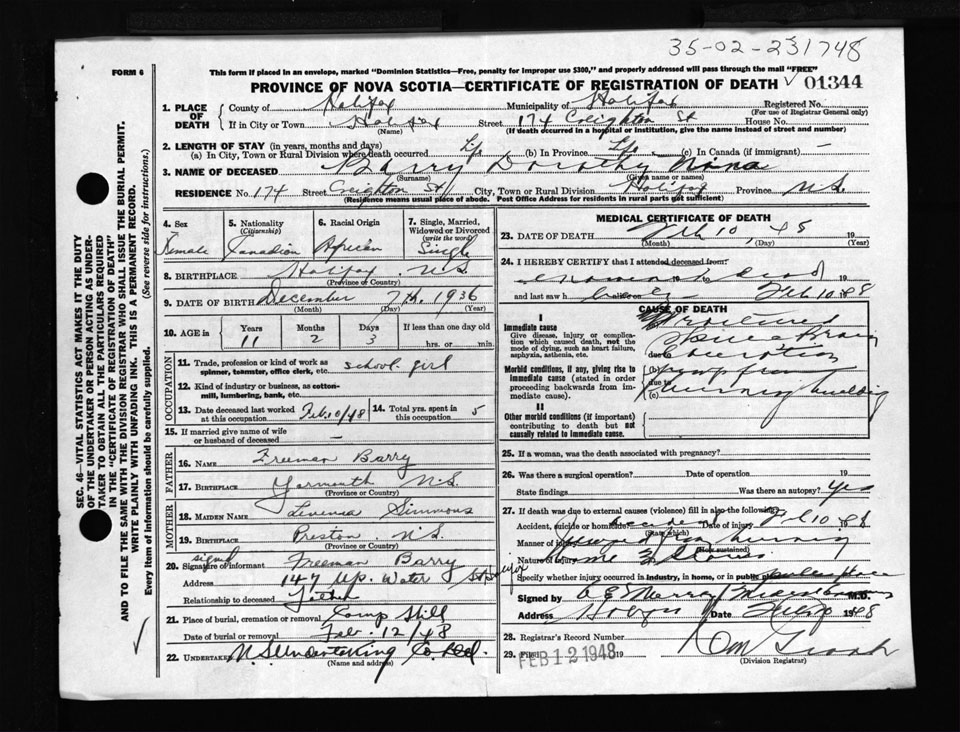 35-02-231748
FORM 6
This form if placed in an envelope, marked "Dominion Statistics—Free, penalty for improper use $300," and properly addressed will pass through the mail "FREE"
PROVINCE OF NOVA SCOTIA—CERTIFICATE OF REGISTRATION OF DEATH ✓ 01344
1. PLACE OF DEATH
County of Halifax Municipality of Halifax Registered No.
(For use of Registrar General only)
If in City or Town Halifax Street 174 Creighton St House No.
(Name) (If death occurred in a hospital or institution, give the name instead of street and number)
2. LENGTH OF STAY (in years, months and days)
(a) In City, Town or Rural Division where death occurred Life (b) In Province Life (c) In Canada (if immigrant) —
3. NAME OF DECEASED Barry Dorothy Nina
(Surname) (Given name or names)
RESIDENCE No. 174 Street Creighton St City, Town or Rural Division Halifax Province N.S.
(Residence means usual place of abode. Post Office Address for residents in rural parts not sufficient)
4. Sex Female
5. Nationality (Citizenship) Canadian
6. Racial Origin African
7. Single, Married, Widowed or Divorced (write the word) Single
8. BIRTHPLACE Halifax N.S.
(Province or Country)
9. DATE OF BIRTH December 7th. 1936
(Month) (Day) (Year)
10. AGE in Years Months Days If less than one day
11 2 3 hrs. or min.
OCCUPATION
11. Trade, profession or kind of work as spinner, teamster, office clerk, etc. school girl
12. Kind of industry or business, as cotton-mill, lumbering, bank, etc.
13. Date deceased last worked at this occupation Feb. 10/48 14. Total yrs. spent in this occupation 5
15. If married give name of wife or husband of deceased —
FATHER
16. NAME Freeman Barry
17. BIRTHPLACE Yarmouth N.S.
(Province or Country)
MOTHER
18. MAIDEN NAME Simmons
19. BIRTHPLACE Preston N.S.
(Province or Country)
20. Signature of informant signed Freeman Barry
Address 147 Up. Water St Halifax
Relationship to deceased Father
21. Place of burial, cremation or removal Camp Hill
Date of burial or removal Feb. 12/48
22. UNDERTAKER N.S Undertaking Co. Ltd.
(Name and address)
MEDICAL CERTIFICATE OF DEATH
23. DATE OF DEATH Feb 10, 48 19
(Month) (Day) (Year)
24. I HEREBY CERTIFY that I attended deceased from
19 to 19
and last saw h alive on Feb 10 1948
CAUSE OF DEATH
I
Immediate cause
Give disease, injury or complication which caused death, not the mode of dying, such as heart failure, asphyxia, asthenia, etc.
due to
Morbid conditions, if any, giving rise to immediate cause (stated in order proceeding backwards from immediate cause).
(b) jump from
due to
(c) burning building
II
Other morbid conditions (if important) contributing to death but not causally related to immediate cause.
25. If a woman, was the death associated with pregnancy?
26. Was there a surgical operation? Date of operation 19
State findings Was there an autopsy? yes
27. If death was due to external causes (violence) fill in also the following:
Accident, suicide or homicide? Date of injury Feb 10 1948
(State which)
Manner of injury burning
(How sustained)
Nature of injury
Specify whether injury occurred in industry, in home, or in public place
Signed by M.D.
Address Date Feb 1948
28. Registrar's Record Number
29. Filed FEB 12 1948 19
(Division Registrar)
SEC. 46—VITAL STATISTICS ACT MAKES IT THE DUTY
OF THE UNDERTAKER OR PERSON ACTING AS UNDER-
TAKER TO OBTAIN ALL THE PARTICULARS REQUIRED
IN THE "CERTIFICATE OF REGISTRATION OF DEATH"
AND TO FILE THE SAME WITH THE DIVISION REGISTRAR WHO SHALL ISSUE THE BURIAL PERMIT.
WRITE PLAINLY WITH UNFADING INK. THIS IS A PERMANENT RECORD.
Every item of information should be carefully supplied. (See reverse side for instructions.)